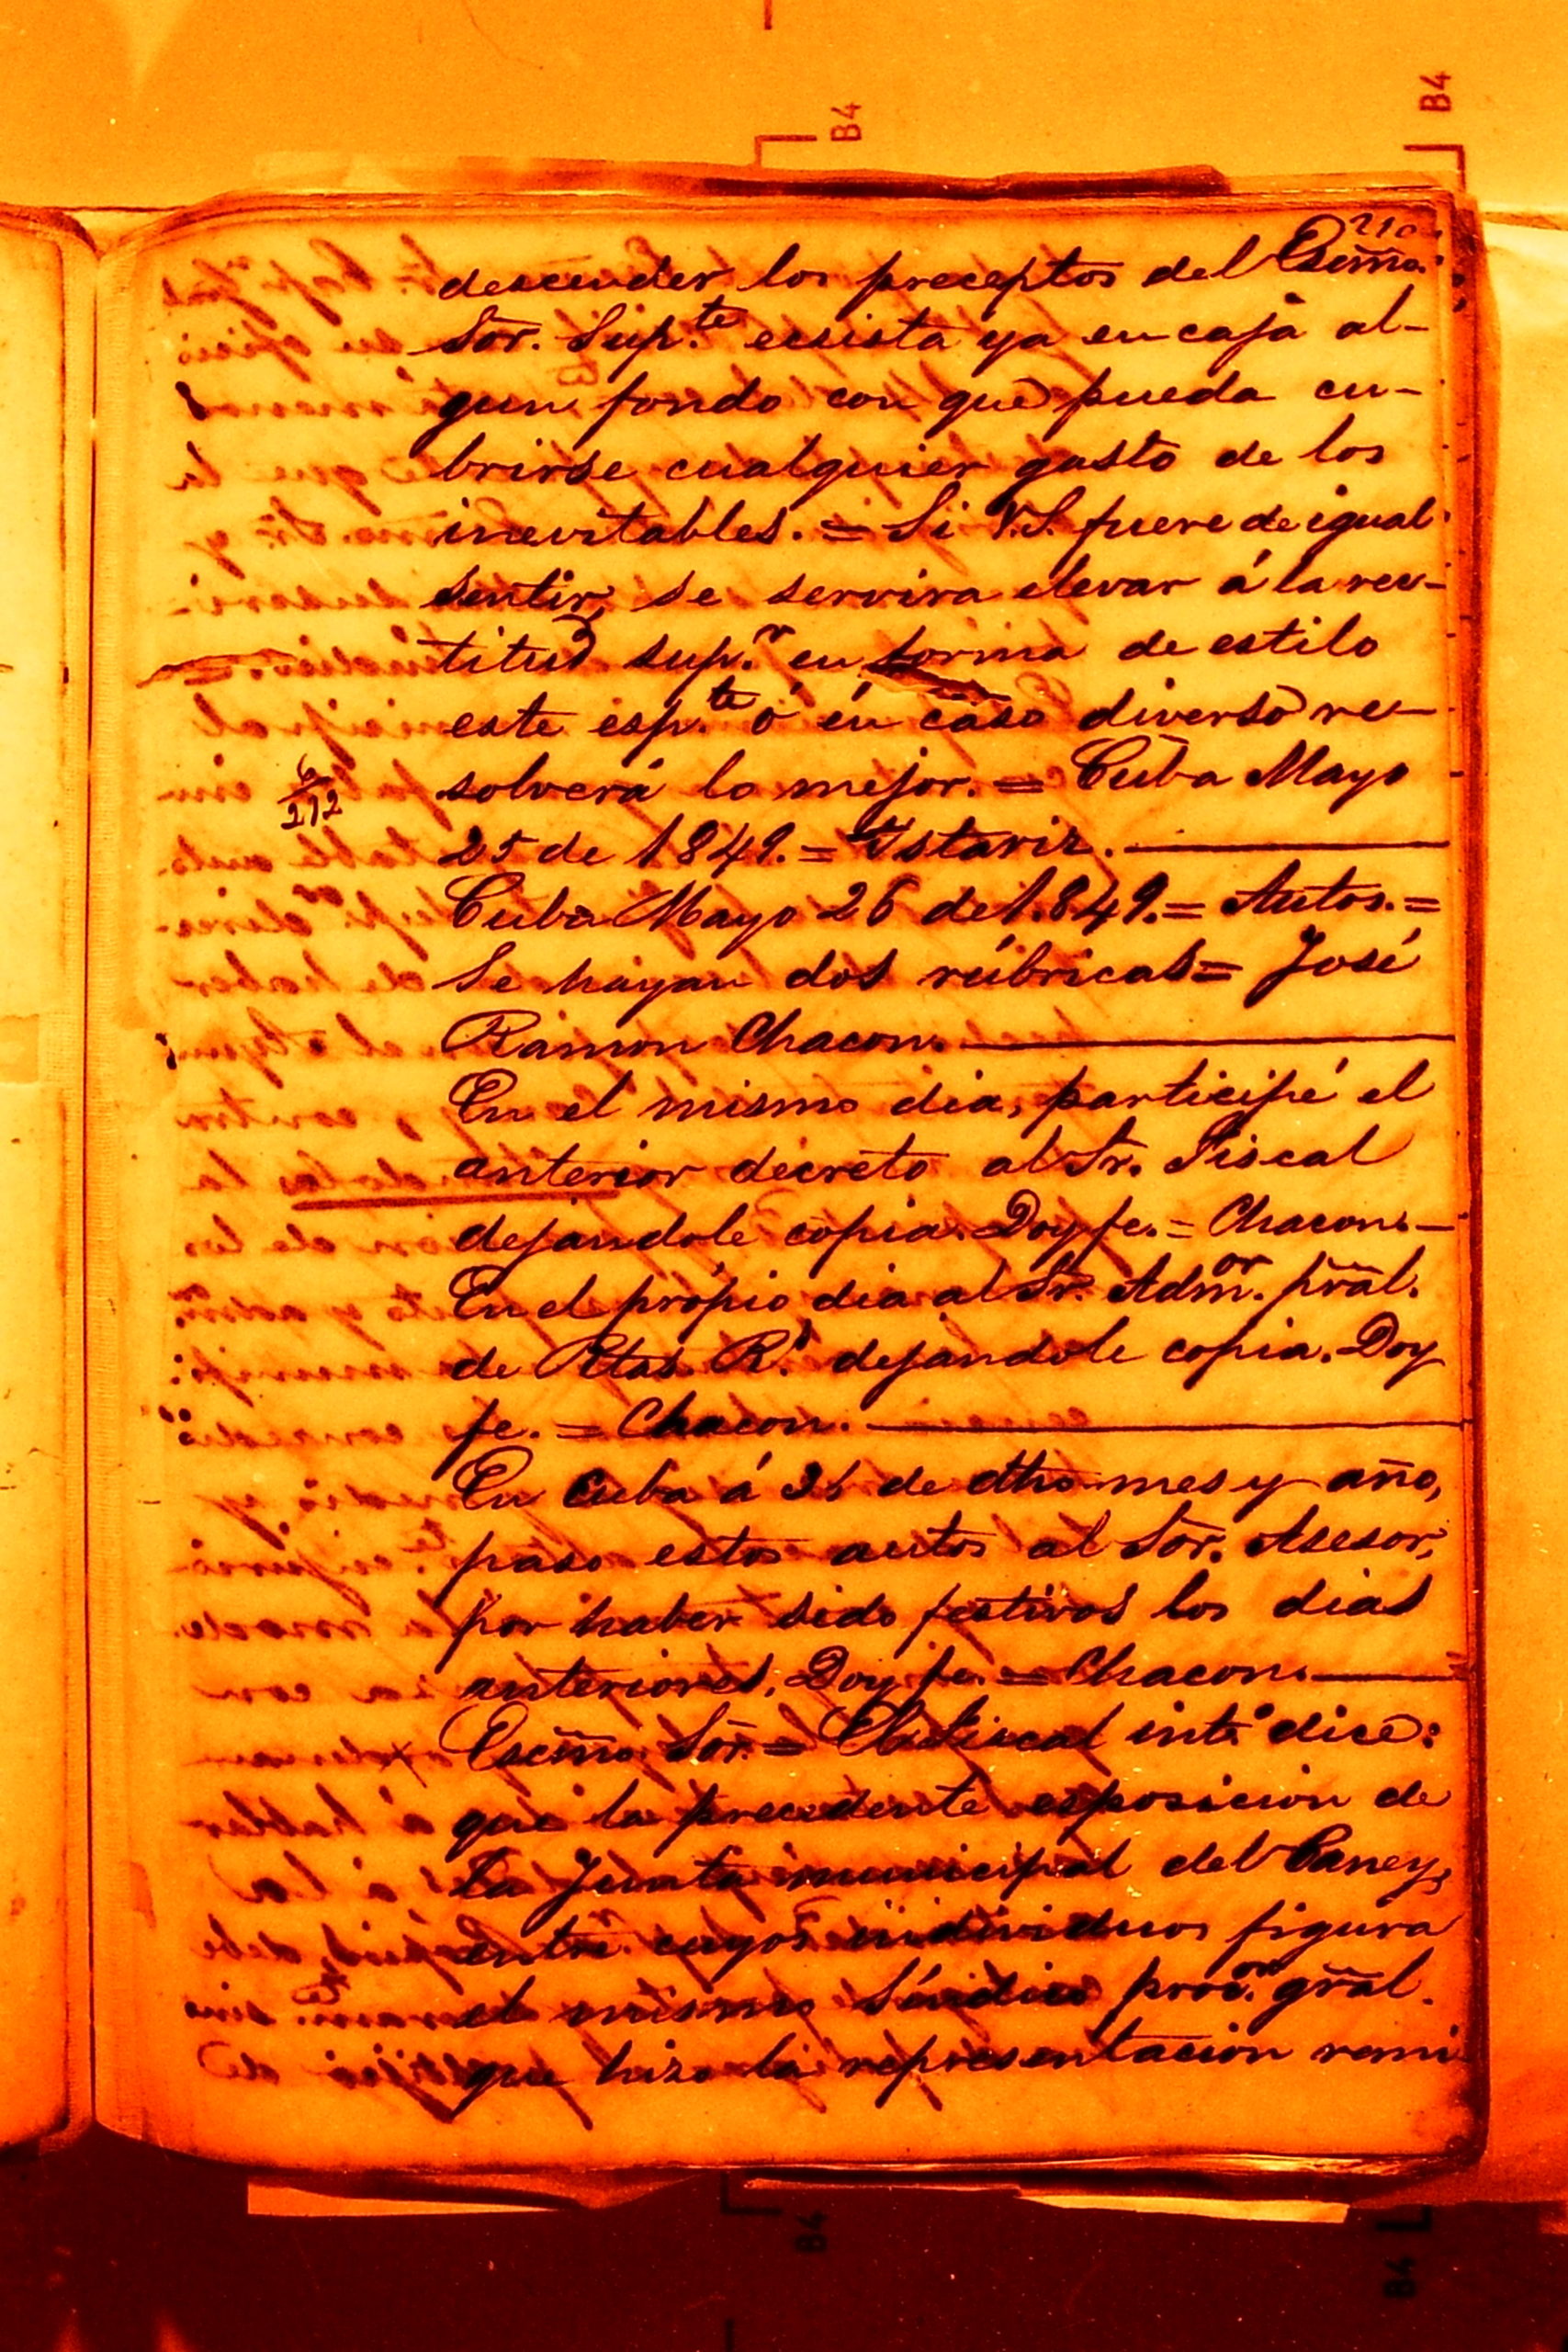 B4
B4
210
descender los preceptos del Escmo.
Sor. Sup.te ecsista ya en caja al-
gun fondo con que pueda cu-
brirse cualquier gasto de los
inevitables. = Si V.S. fuere de igual
sentir, se servira elevar á la rec-
titud sup.r en forma de estilo
este esp.te ó en caso diverso re-
solverá lo mejor. = Cuba Mayo
6
212
25 de 1849. = Ystariz.
Cuba Mayo 26 de 1.849. = Autos. =
Se hayan dos rúbricas = José
Ramon Chacon.
En el mismo dia, participé el
anterior decreto al Sr. Fiscal
dejandole copia. Doy fe. = Chacon.
En el própio dia al Sr. Adm.or prãl.
de Rtas. R.s dejandole copia. Doy
fe. = Chacon.
En Cuba á 31 de dho mes y año,
paso estos autos al Sõr. Asesor,
por haber sido festivos los dias
anteriores, Doy fe. = Chacon.
Escmo. Sõr. = El Fiscal int.o dice:
que la precedente esposicion de
la Junta municipal del Caney,
entre cuyos individuos figura
el mismo Síndico proc.or grãl.
que hizo la representacion remi
B4
B4